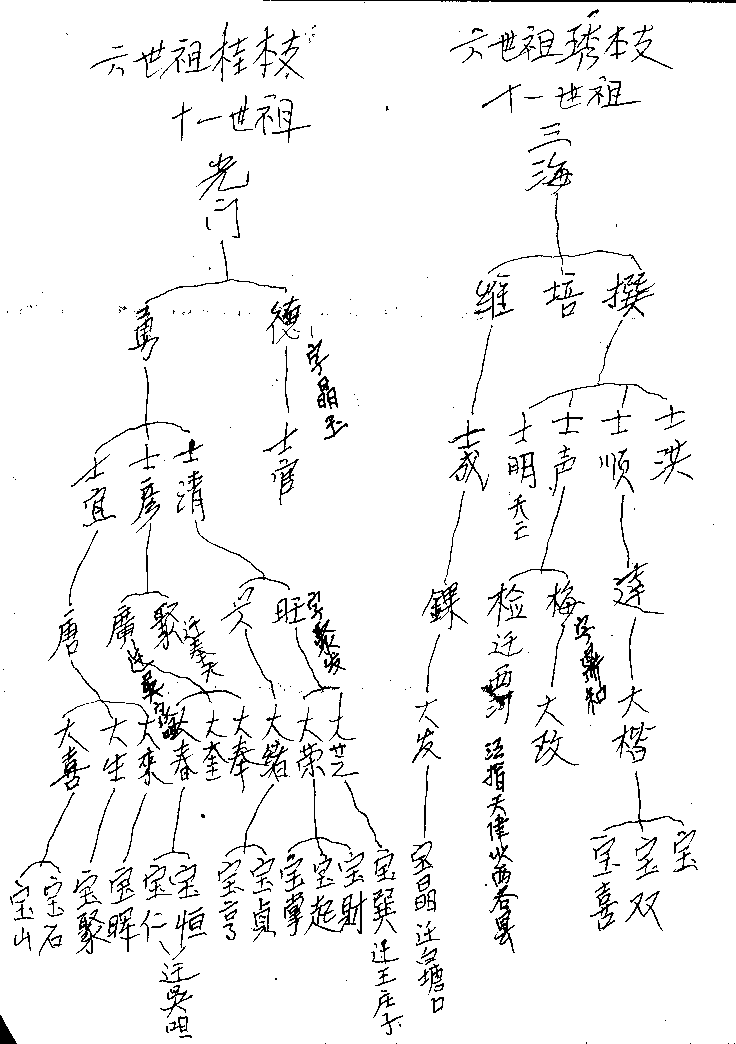 六世祖桂本支
十一世祖
光门
勇 德
字晶玉
士宜 士彦 士清 士官
唐 廣 聚 旺
迁奉天
字聚发
大喜 大生 大来 大春 大奎 大奉 大绪 大荣 大芝
宝山 宝石 宝聚 宝晖 宝仁 宝恒 宝亨 宝贞 宝掌 宝起 宝财 宝巽
迁吴咀
迁王庄子
六世祖琇本支
十一世祖
三海
维 培 撰
士成 士明 士声 士顺 士洪
天亡
錁 检 梅 達
迁西河
字鼎和
大发 大改 大楷
注指天津以西各县
宝晶 宝喜 宝双 宝
迁白塘口